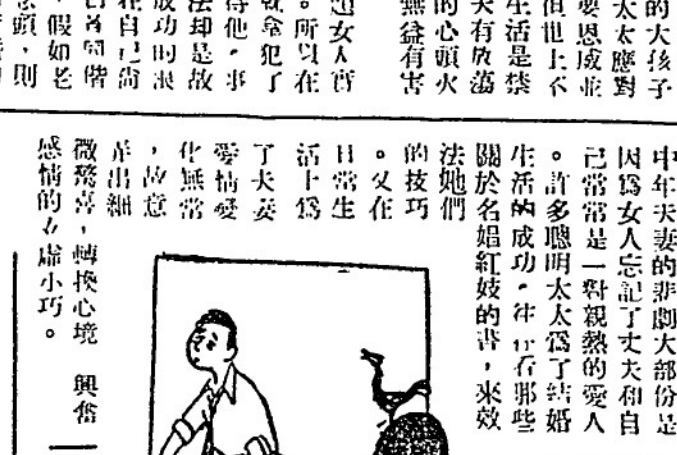 的大孩子
太太應對
要恩威並
但世上不
生活是禁
夫有放蕩
的心頭火
無益有害
女人
。所以在
犯了
待他。事
法却是故
成功时
在自己尚
偕
，假如老
念頭，則
中年夫妻的悲劇大部份是
因爲女人忘記了丈夫和自
己常常是一對親熱的愛人
。許多聰明太太爲了結婚
生活的成功。往往看那些
關於名娼紅妓的書，來效
法她們
的技巧
。又在
日常生
活上爲
了夫妻
愛情變
化無常
，故意
弄出細
微驚喜，轉換心境 興奮
感情的 虛小巧。